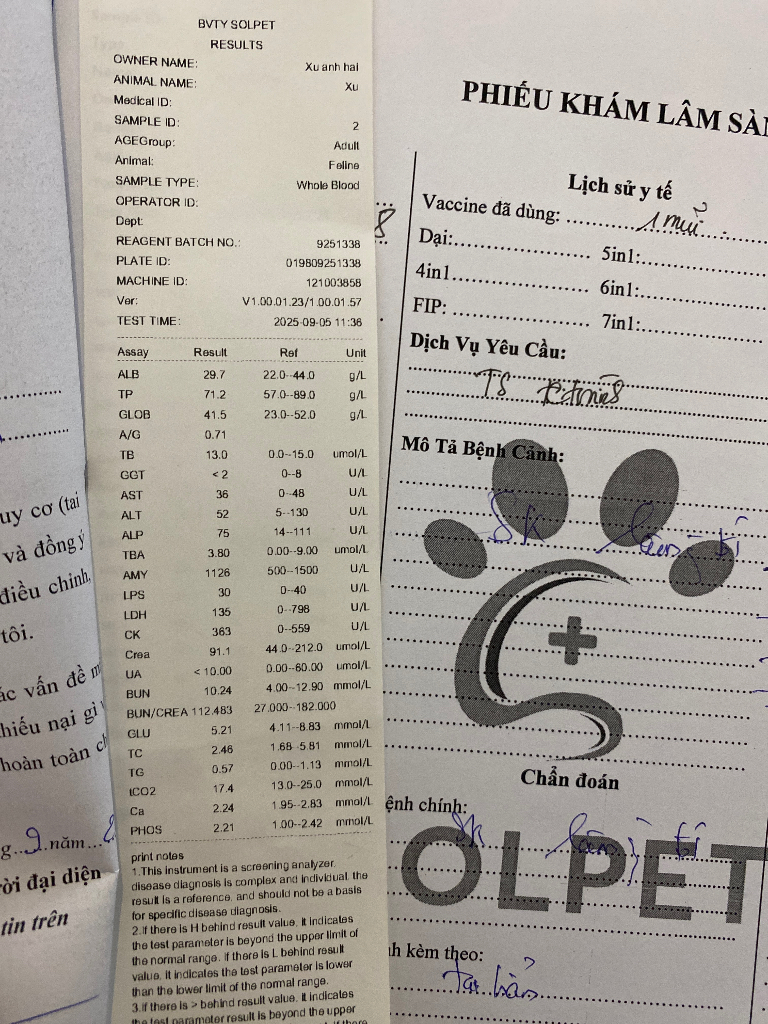 BVTY SOLPET
RESULTS
OWNER NAME: Xu anh hai
ANIMAL NAME: Xu
Medical ID:
SAMPLE ID: 2
AGEGroup: Adult
Animal: Feline
SAMPLE TYPE: Whole Blood
OPERATOR ID:
Dept:
REAGENT BATCH NO.: 9251338
PLATE ID: 019809251338
MACHINE ID: 121003858
Ver: V1.00.01.23/1.00.01.57
TEST TIME: 2025-09-05 11:36
Assay Result Ref Unit
ALB 29.7 22.0--44.0 g/L
TP 71.2 57.0--89.0 g/L
GLOB 41.5 23.0--52.0 g/L
A/G 0.71
TB 13.0 0.0--15.0 umol/L
GGT < 2 0--8 U/L
AST 36 0--48 U/L
ALT 52 5--130 U/L
ALP 75 14--111 U/L
TBA 3.80 0.00--9.00 umol/L
AMY 1126 500--1500 U/L
LPS 30 0--40 U/L
LDH 135 0--798 U/L
CK 363 0--559 U/L
Crea 91.1 44.0--212.0 umol/L
UA < 10.00 0.00--60.00 umol/L
BUN 10.24 4.00--12.90 mmol/L
BUN/CREA 112.483 27.000--182.000
GLU 5.21 4.11--8.83 mmol/L
TC 2.46 1.68--5.81 mmol/L
TG 0.57 0.00--1.13 mmol/L
tCO2 17.4 13.0--25.0 mmol/L
Ca 2.24 1.95--2.83 mmol/L
PHOS 2.21 1.00--2.42 mmol/L
print notes
1.This instrument is a screening analyzer.
disease diagnosis is complex and individual, the
result is a reference, and should not be a basis
for specific disease diagnosis.
2.If there is H behind result value, it indicates
the test parameter is beyond the upper limit of
the normal range. If there is L behind result
value, it indicates the test parameter is lower
than the lower limit of the normal range.
3.If there is > behind result value, it indicates
the test parameter result is beyond the upper
PHIẾU KHÁM LÂM SÀN
Lịch sử y tế
Vaccine đã dùng: 1 mũi
Dại: 5in1:
4in1 6in1:
FIP: 7in1:
Dịch Vụ Yêu Cầu:
TS
Mô Tả Bệnh Cảnh:
Sk lâm
Chẩn đoán
ệnh chính:
Sk lâm
OLPET
nh kèm theo:
uy cơ (tai
và đồng ý
điều chỉnh,
tôi.
ác vấn đề m
hiếu nại gì
hoàn toàn ch
g 9 năm
ời đại diện
tin trên